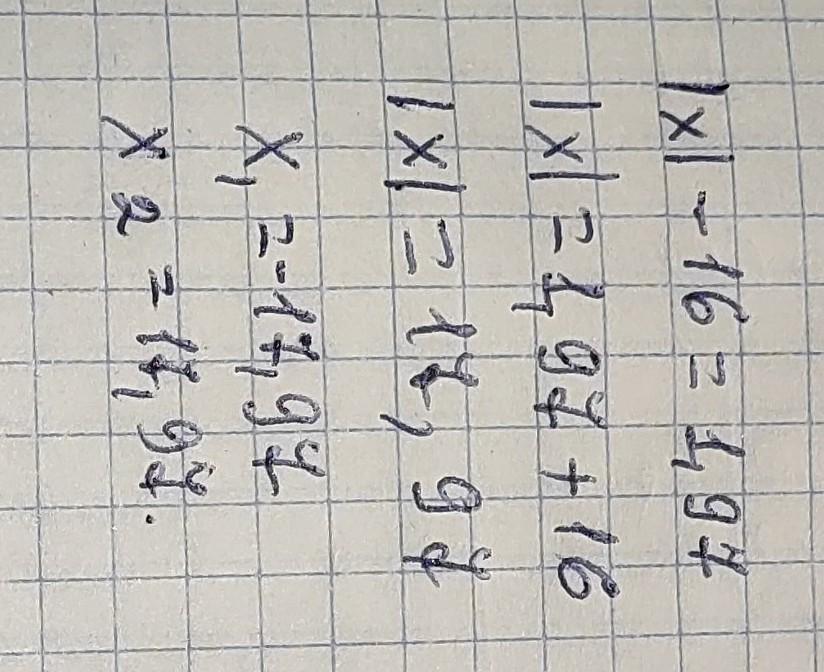 |x| - 16 = 1,97
|x| = 1,97 + 16
|x| = 17,97
x₁ = -17,97
x₂ = 17,97.